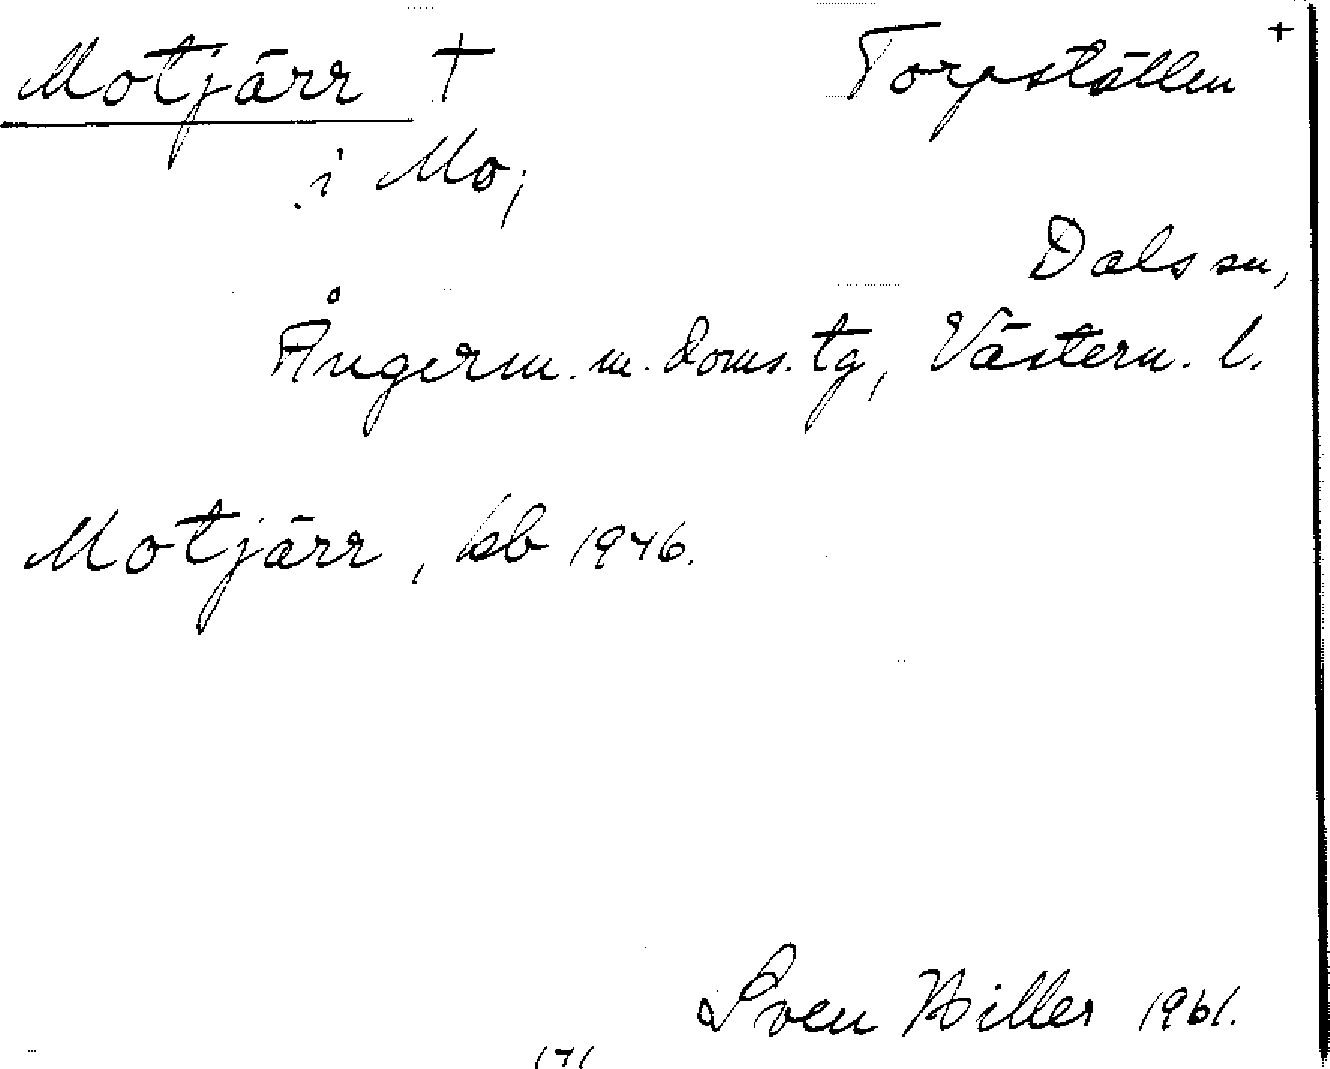 Motjärr † Torpställen +
i Mo;
Dals sn,
Ångerm. m. doms. tg, Västern. l.
Motjärr, kb 1946.
Sven Hiller 1961.
171